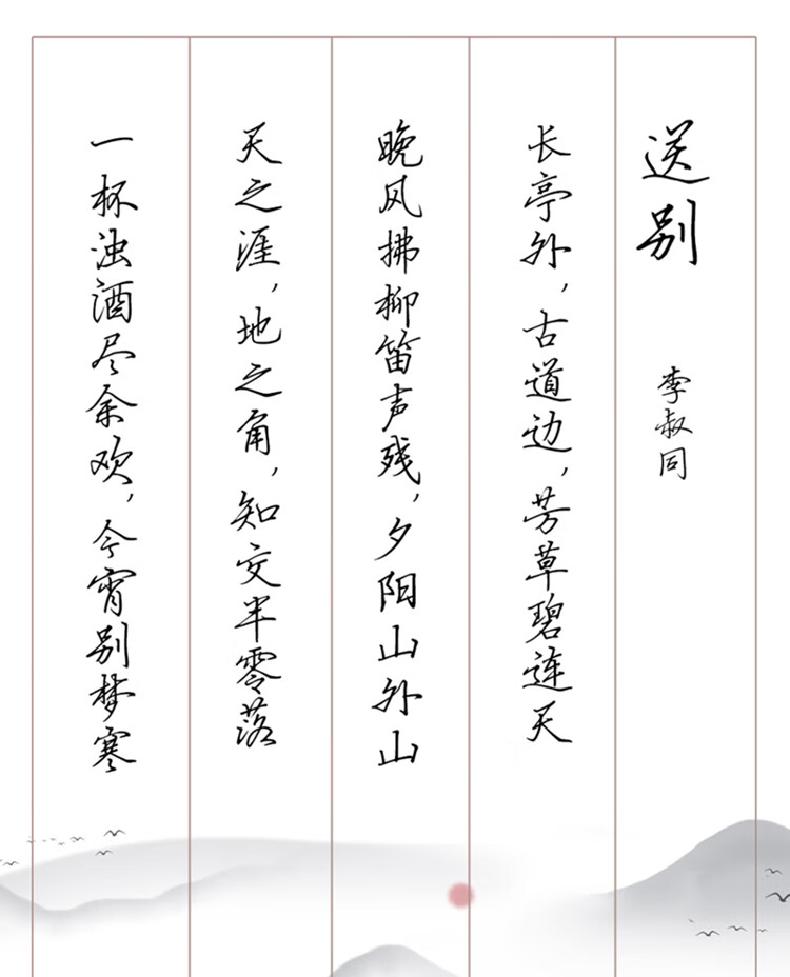 送别
李叔同
长亭外，古道边，芳草碧连天
晚风拂柳笛声残，夕阳山外山
天之涯，地之角，知交半零落
一杯浊酒尽余欢，今宵别梦寒